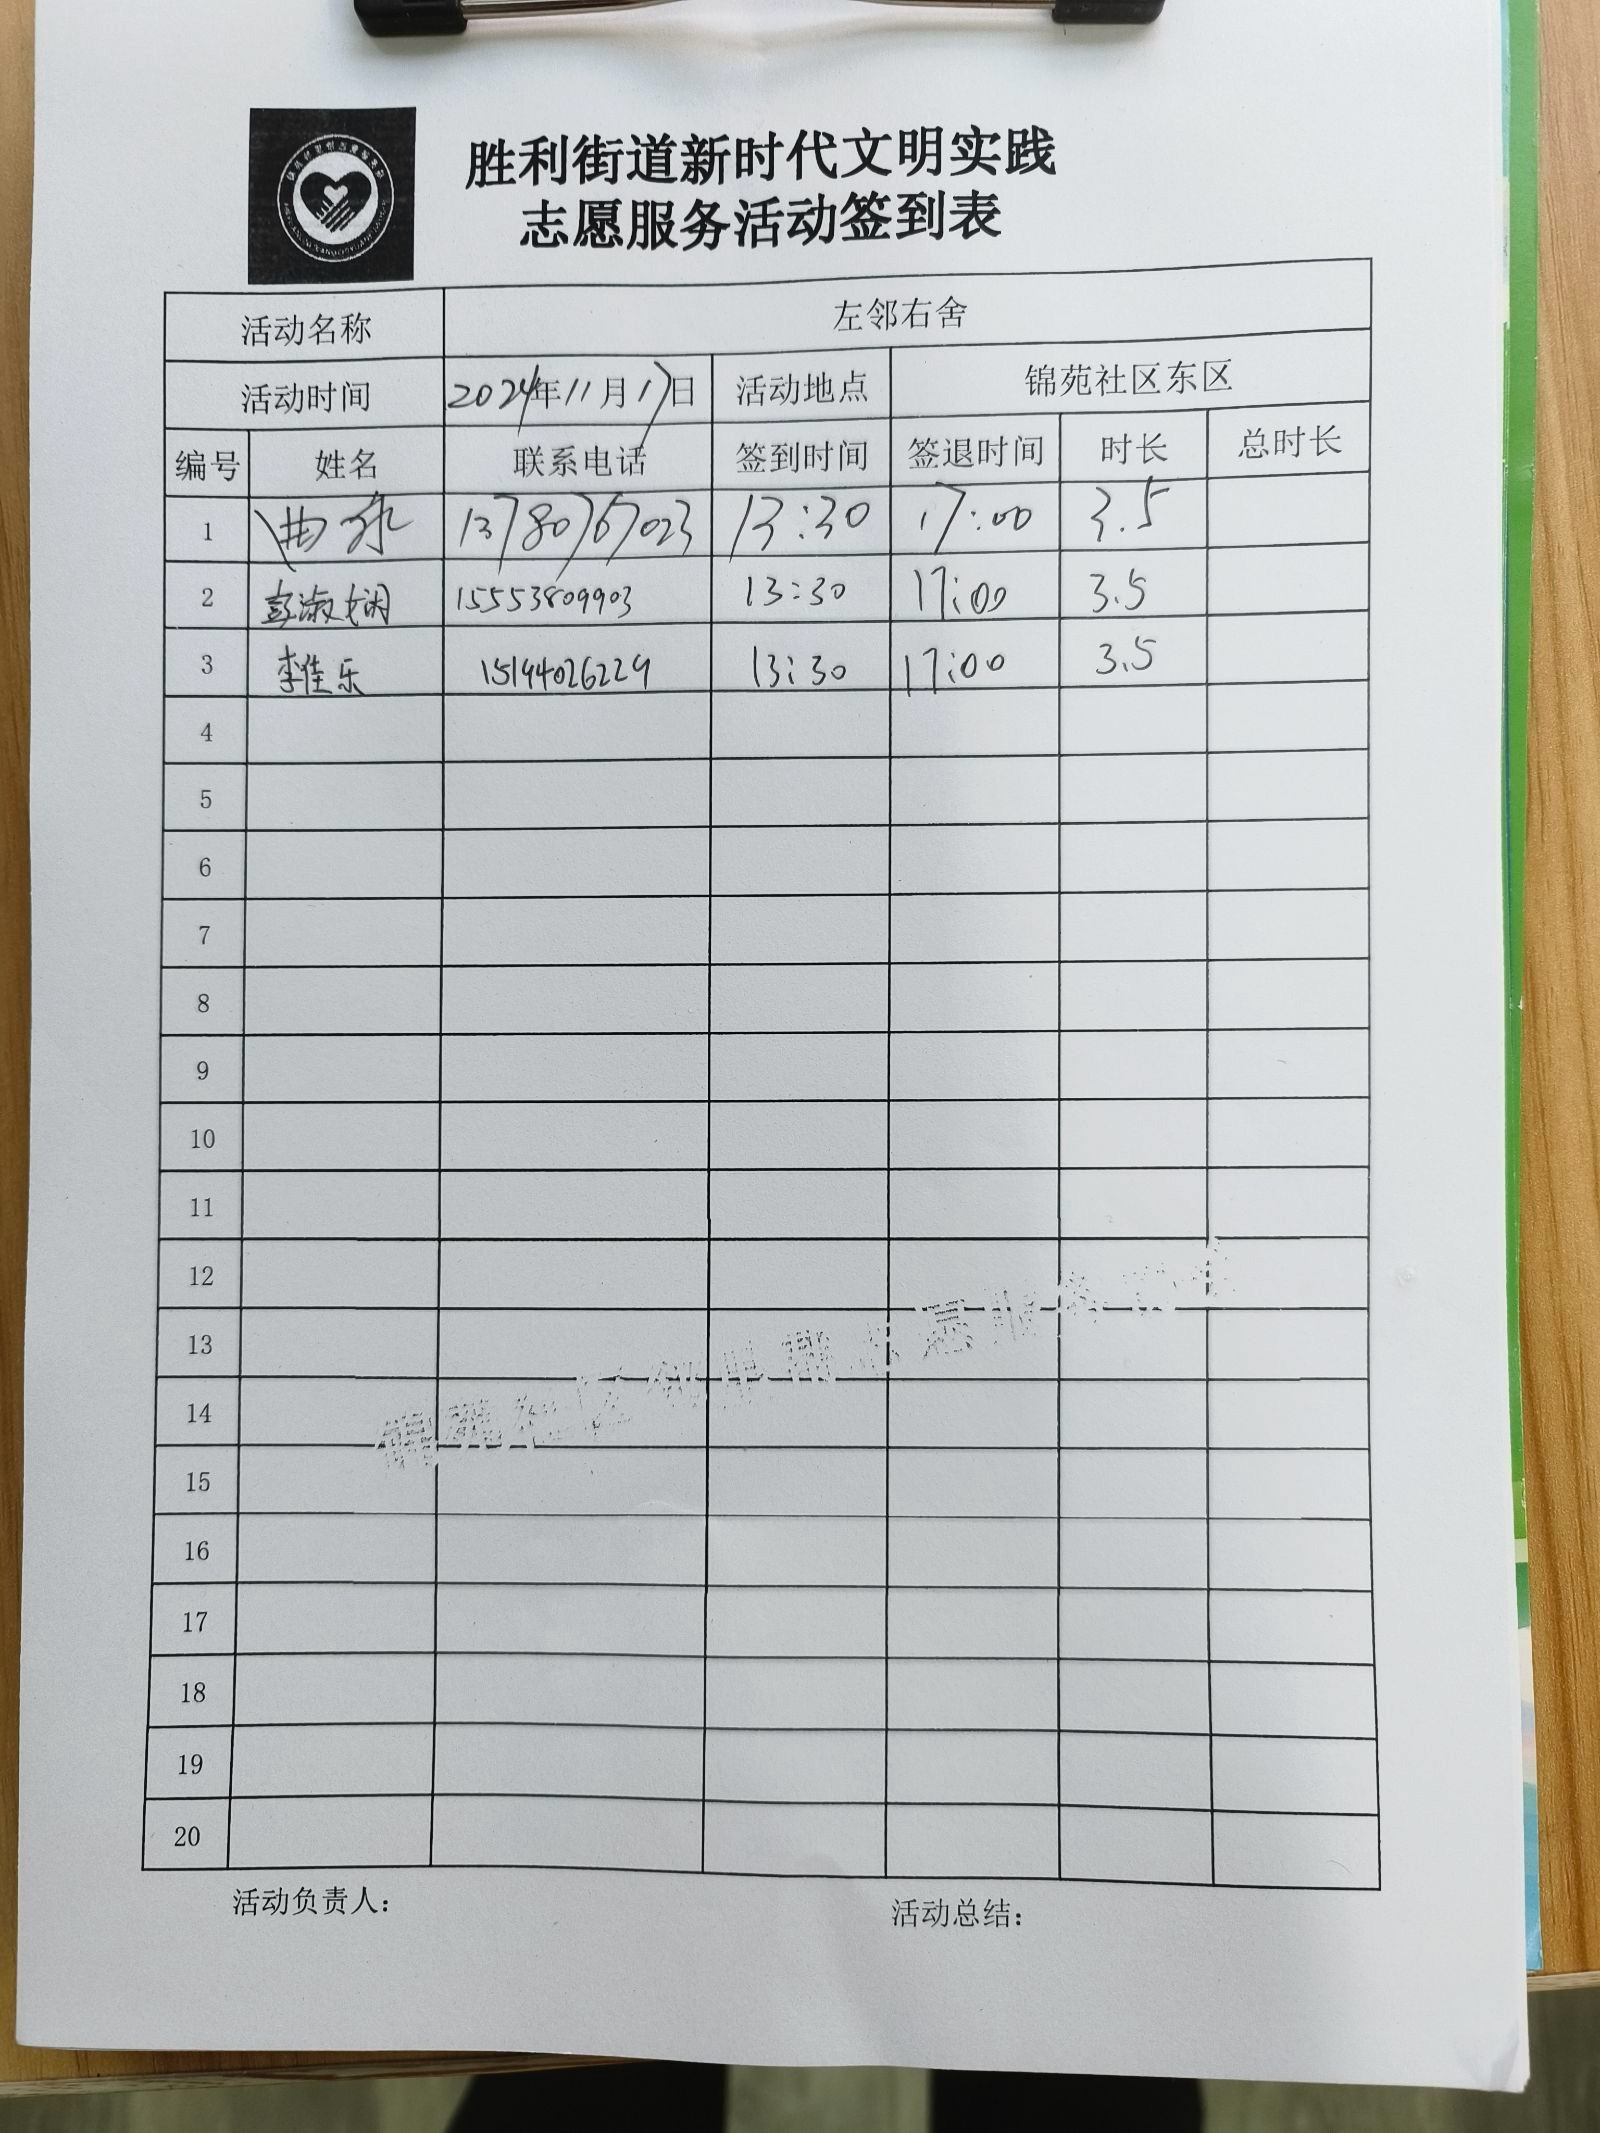 胜利街道新时代文明实践
志愿服务活动签到表
活动名称 左邻右舍
活动时间 2024年11月17日 活动地点 锦苑社区东区
编号 姓名 联系电话 签到时间 签退时间 时长 总时长
1 曲 13780767023 13:30 17:00 3.5
2 彭淑娴 15553809903 13:30 17:00 3.5
3 李佳乐 15194026229 13:30 17:00 3.5
4
5
6
7
8
9
10
11
12
13
14
15
16
17
18
19
20
活动负责人：
活动总结：